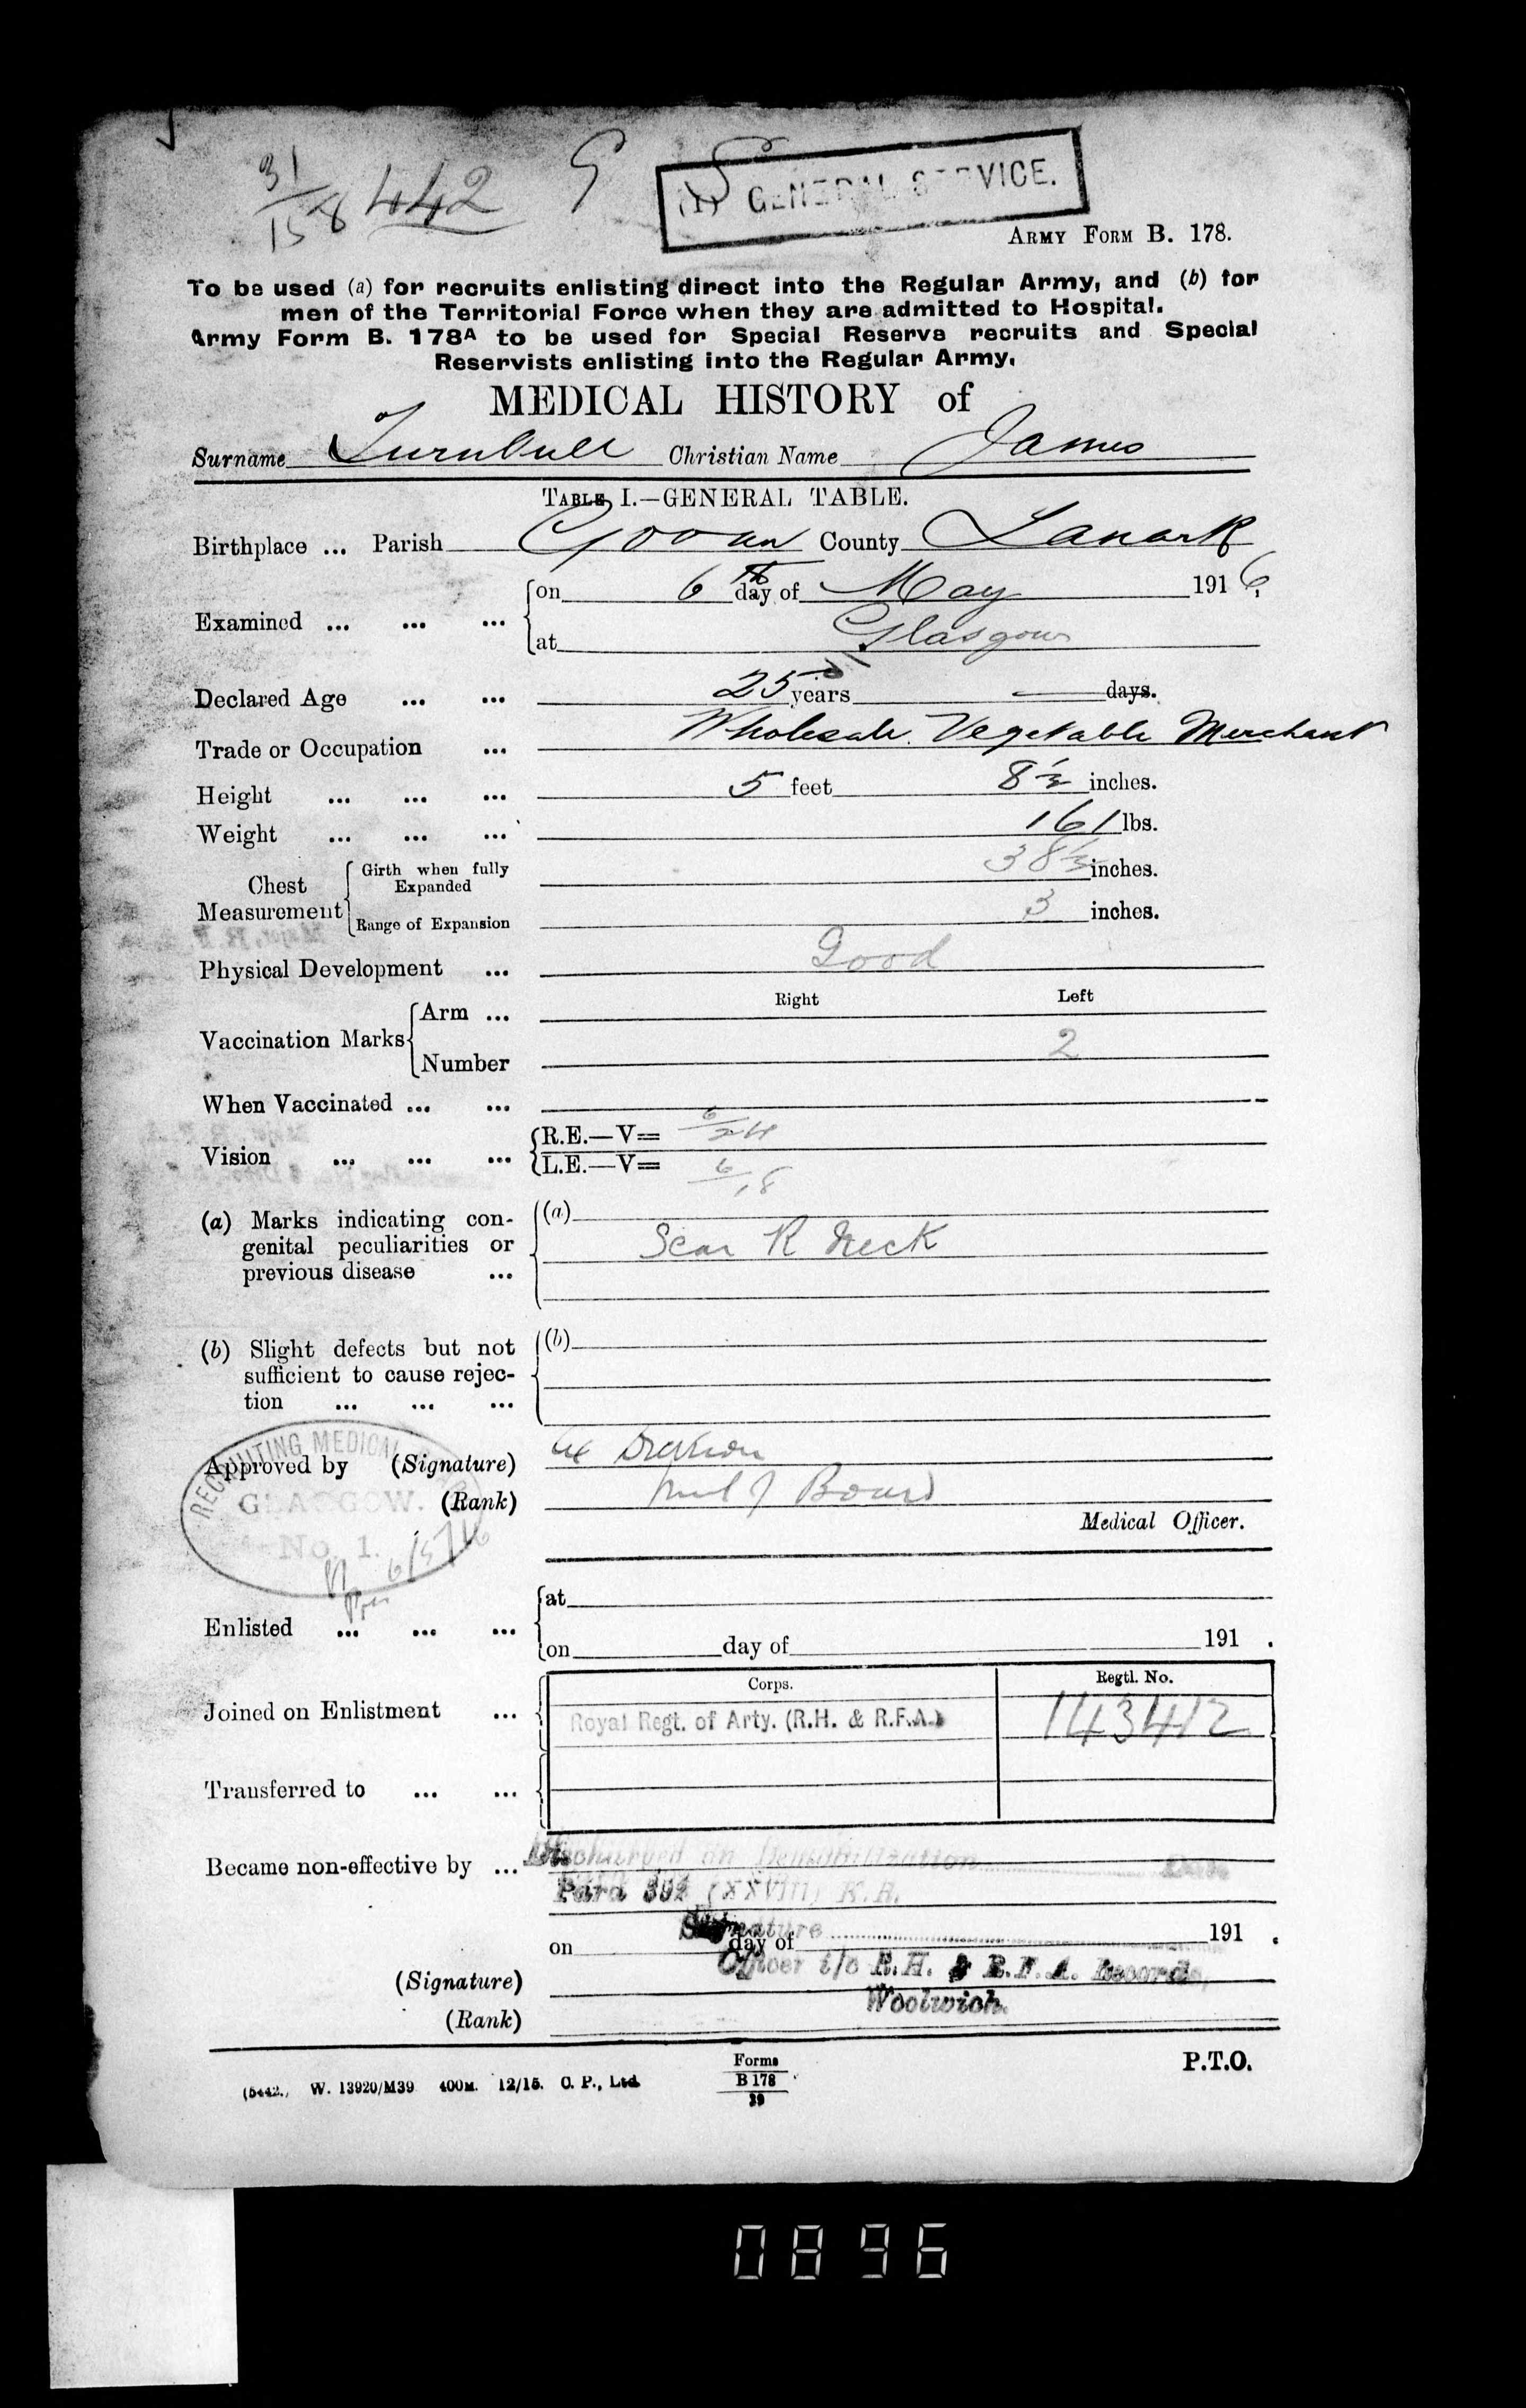 31
15 8 442 G S
(1) GENERAL SERVICE.
ARMY FORM B. 178.
To be used (a) for recruits enlisting direct into the Regular Army, and (b) for
men of the Territorial Force when they are admitted to Hospital.
Army Form B. 178A to be used for Special Reserve recruits and Special
Reservists enlisting into the Regular Army.
MEDICAL HISTORY of
Surname Turnbull Christian Name James
TABLE I.—GENERAL TABLE.
Birthplace ... Parish Govan County Lanark
Examined ... ... ... on 6th day of May 1916.
at Glasgow
Declared Age ... ... 25 years — days.
Trade or Occupation ... Wholesale Vegetable Merchant
Height ... ... ... 5 feet 8½ inches.
Weight ... ... ... 161 lbs.
Chest Measurement Girth when fully Expanded 38½ inches.
Range of Expansion 3 inches.
Physical Development ... Good
Right Left
Vaccination Marks Arm ...
Number 2
When Vaccinated ... ...
Vision ... ... ... R.E.—V= 6/24
L.E.—V= 6/18
(a) Marks indicating con- (a)
genital peculiarities or Scar R Neck
previous disease ...
(b) Slight defects but not (b)
sufficient to cause rejec-
tion ... ... ...
RECRUITING MEDICAL
GLASGOW.
No. 1.
6/5/16
Approved by (Signature)
(Rank) Board
Medical Officer.
Enlisted ... ... ... at
on day of 191 .
Corps. Regtl. No.
Joined on Enlistment ... Royal Regt. of Arty. (R.H. & R.F.A.) 143412
Transferred to ... ...
Became non-effective by ... Discharged on Demobilization
Para 392 (XXVIII) K.R.
Signature
on day of 191 .
Officer i/c R.H. & R.F.A. Records,
(Signature)
Woolwich.
(Rank)
P.T.O.
(5442.) W. 13920/M39 400M. 12/15. C. P., Ltd. Forms
B 178
39
0896